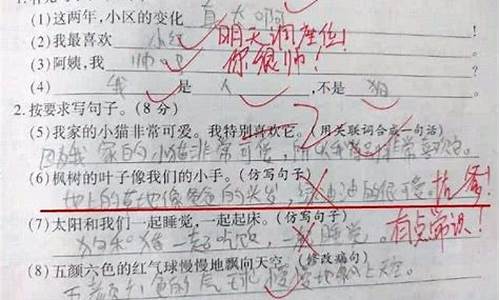 (1)这两年,小区的变化 真大啊
(2)我最喜欢 小红 明天调座位!
(3)阿姨,我 帅吧 你很帅!
(4) 我 是 人 ,不是 狗
2.按要求写句子。(8分)
(5)我家的小猫非常可爱。我特别喜欢它。(用关联词合成一句话)
因为我家的小猫非常可爱,所以我非常喜欢它。
(6)枫树的叶子像我们的小手。(仿写句子)
地上的草地像爸爸的头发,绿油油的很可爱。
(7)太阳和我们一起睡觉,一起起床。(仿写句子) 有点常识!
狗和猪一起吃饭,一起睡觉。
(8)五颜六色的红气球慢慢地飘向天空。(修改病句)
五颜六色的气球慢慢地飘上天空。